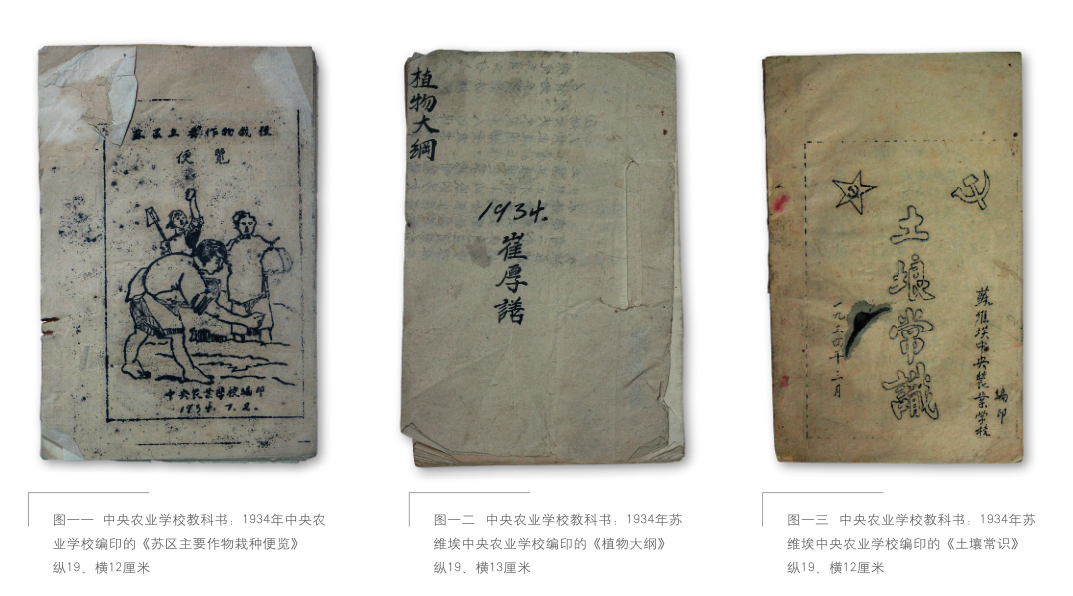 苏区主要作物栽種
便覽
中央农業学校编印
1934. 7. 2.
植物大綱
1934.
崔厚譜
土壤常識
一九三四年十二月
蘇維埃中央農業学校
编印
图一一 中央农业学校教科书：1934年中央农
业学校编印的《苏区主要作物栽种便览》
纵19、横12厘米
图一二 中央农业学校教科书：1934年苏
维埃中央农业学校编印的《植物大纲》
纵19、横13厘米
图一三 中央农业学校教科书：1934年苏
维埃中央农业学校编印的《土壤常识》
纵19、横12厘米